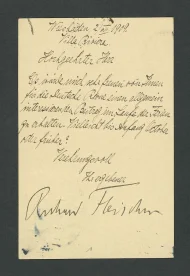 Wiesbaden 2 VII 1909.
Villa Riviera
Hochgeehrter Herr
Es würde mich sehr freuen von Ihnen
für die Deutsche Revue einen allgemein
interessierenden Beitrag im Laufe der Ferien
zu erhalten. Vielleicht bis Anfang Oktober
oder früher?
Hochachtungsvoll
Ihr ergebener
Richard Fleischer